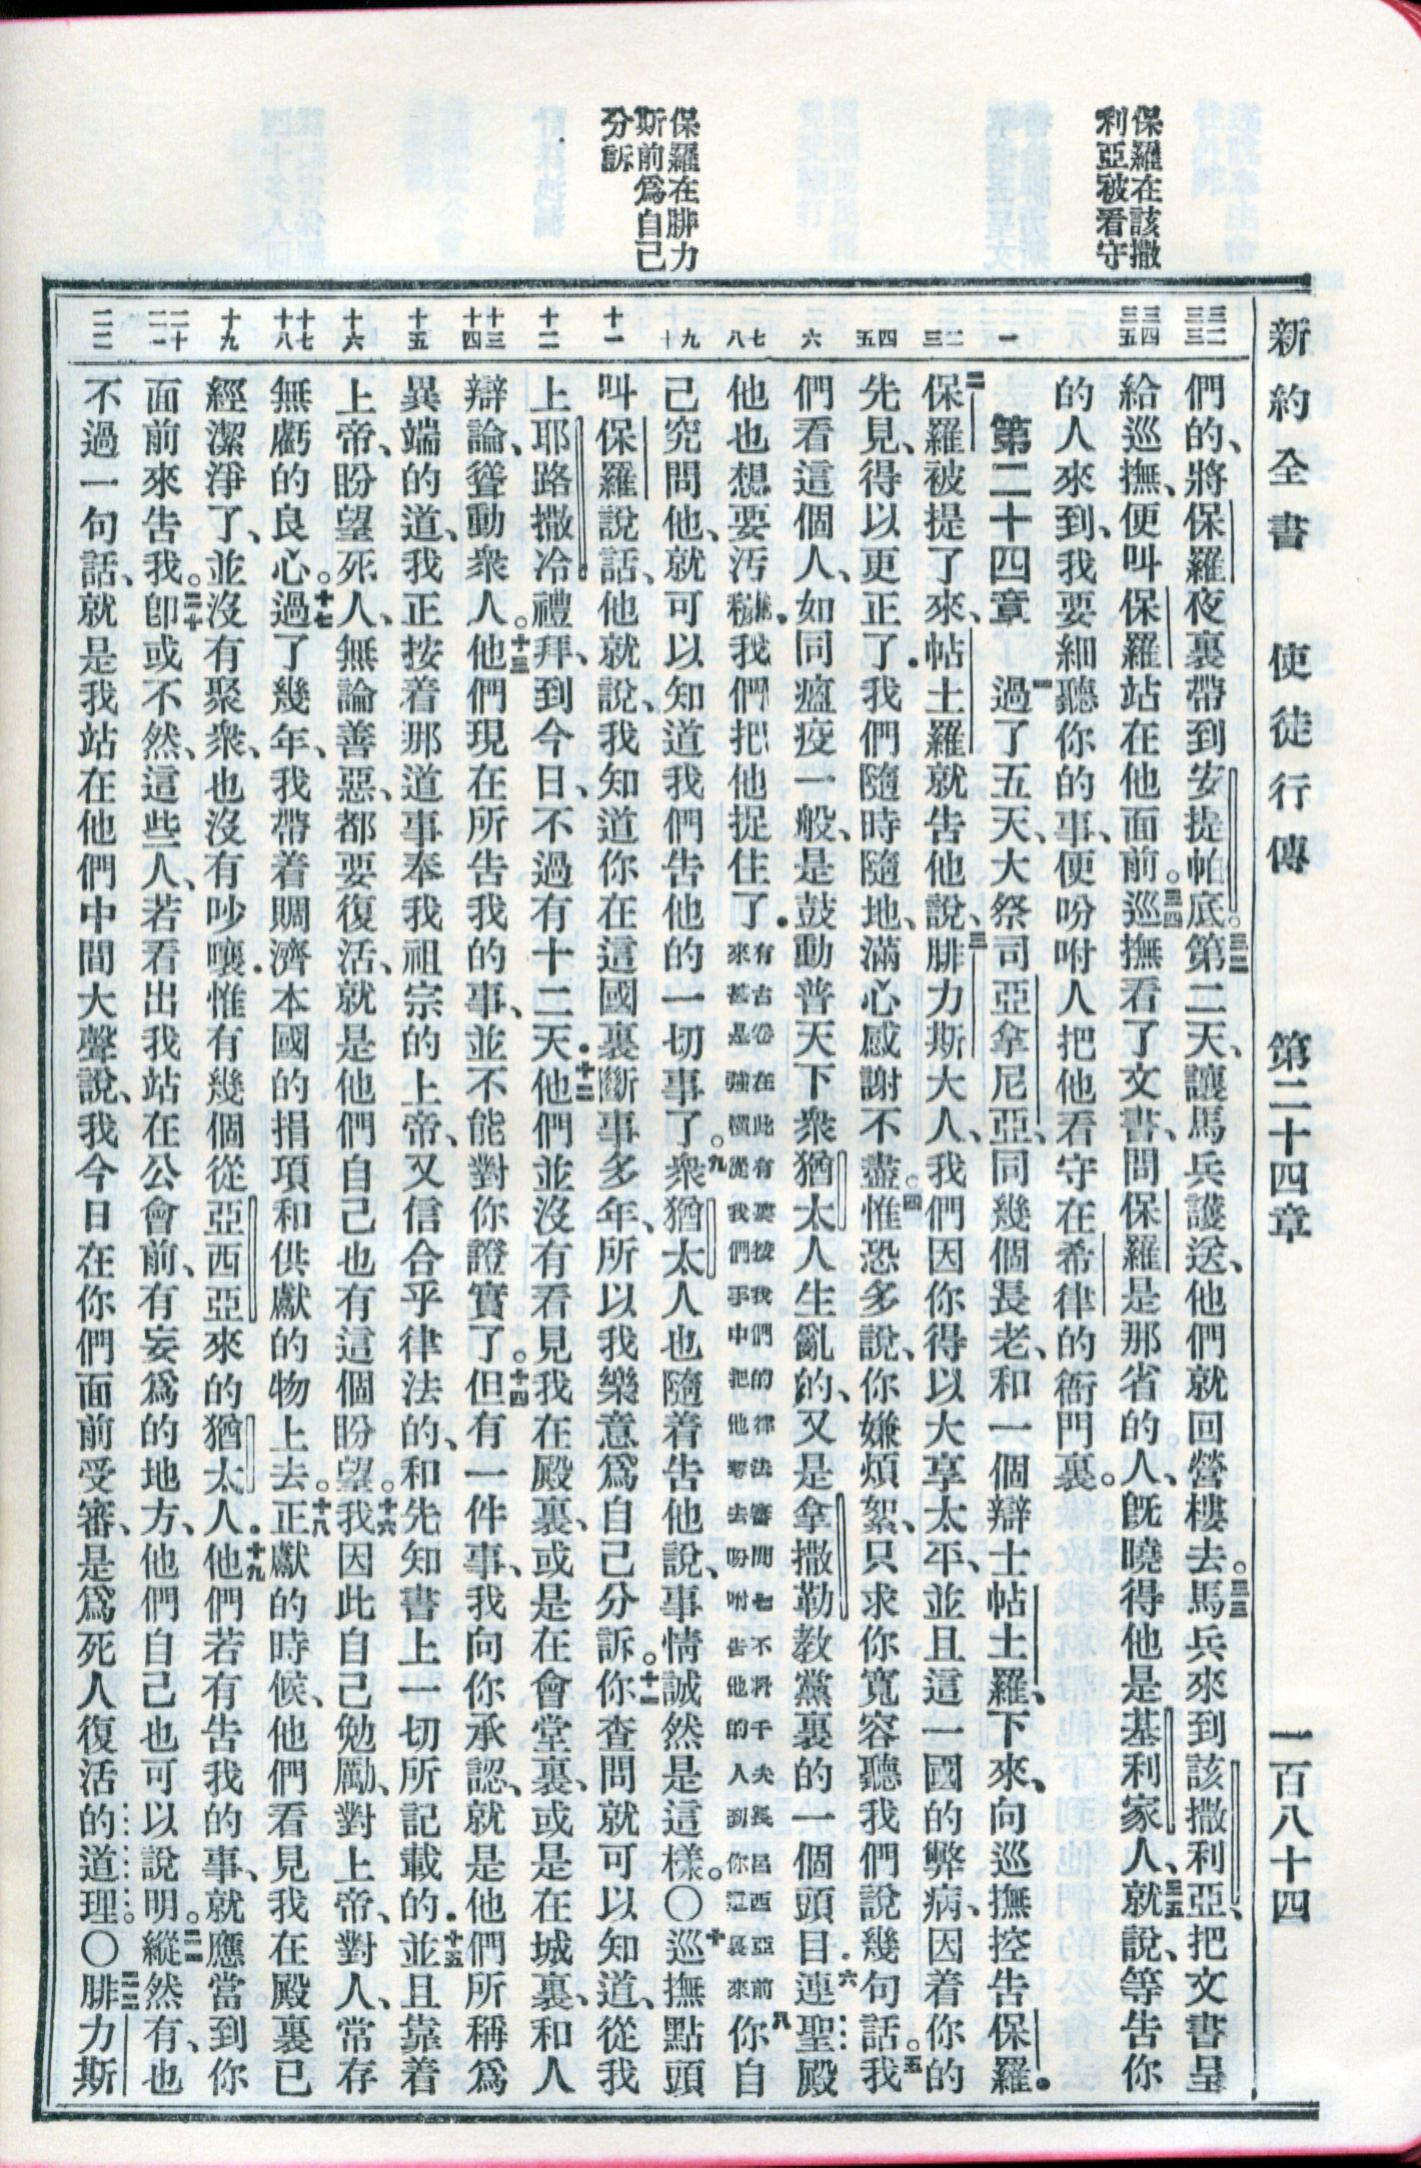 新約全書　使徒行傳　第二十四章　一百八十四
保羅在該撒
利亞被看守
保羅在腓力
斯前爲自己
分訴
三二
三三
三四
三五
一
二
三
四
五
六
七
八
九
十
十一
十二
十三
十四
十五
十六
十七
十八
十九
二十
二一
二二
們的、將保羅夜裏帶到安提帕底。三二第二天、讓馬兵護送、他們就回營樓去。三三馬兵來到該撒利亞、把文書呈
給巡撫、便叫保羅站在他面前。三四巡撫看了文書、問保羅是那省的人、旣曉得他是基利家人、三五就說、等告你
的人來到、我要細聽你的事、便吩咐人把他看守在希律的衙門裏。
第二十四章　一過了五天、大祭司亞拿尼亞、同幾個長老、和一個辯士帖土羅、下來、向巡撫控告保羅．
二保羅被提了來、帖土羅就告他說、三腓力斯大人、我們因你得以大享太平、並且這一國的弊病、因着你的
先見、得以更正了．我們隨時隨地、滿心感謝不盡。四惟恐多說、你嫌煩絮、只求你寬容聽我們說幾句話。五我
們看這個人、如同瘟疫一般、是鼓動普天下衆猶太人生亂的、又是拿撒勒教黨裏的一個頭目．六連聖殿
他也想要汚穢．我們把他捉住了．有古卷在此有要按我們的律法審問七不料千夫長呂西亞前來甚是強橫從我們手中把他奪去吩咐告他的人到你這裏來八你自
己究問他、就可以知道我們告他的一切事了。九衆猶太人也隨着告他說、事情誠然是這樣。〇十巡撫點頭
叫保羅說話、他就說、我知道你在這國裏斷事多年、所以我樂意爲自己分訴。十一你查問就可以知道、從我
上耶路撒冷禮拜、到今日、不過有十二天．十二他們並沒有看見我在殿裏、或是在會堂裏、或是在城裏、和人
辯論、聳動衆人。十三他們現在所告我的事、並不能對你證實了。十四但有一件事、我向你承認、就是他們所稱爲
異端的道、我正按着那道事奉我祖宗的上帝、又信合乎律法的、和先知書上一切所記載的．十五並且靠着
上帝、盼望死人、無論善惡、都要復活、就是他們自己也有這個盼望。十六我因此自己勉勵、對上帝、對人、常存
無虧的良心。十七過了幾年、我帶着賙濟本國的捐項和供獻的物上去。十八正獻的時候、他們看見我在殿裏已
經潔淨了、並沒有聚衆、也沒有吵嚷．惟有幾個從亞西亞來的猶太人．十九他們若有告我的事、就應當到你
面前來告我。二十卽或不然、這些人、若看出我站在公會前、有妄爲的地方、他們自己也可以說明。二一縱然有、也
不過一句話、就是我站在他們中間大聲說、我今日在你們面前受審、是爲死人復活的道理。〇二二腓力斯